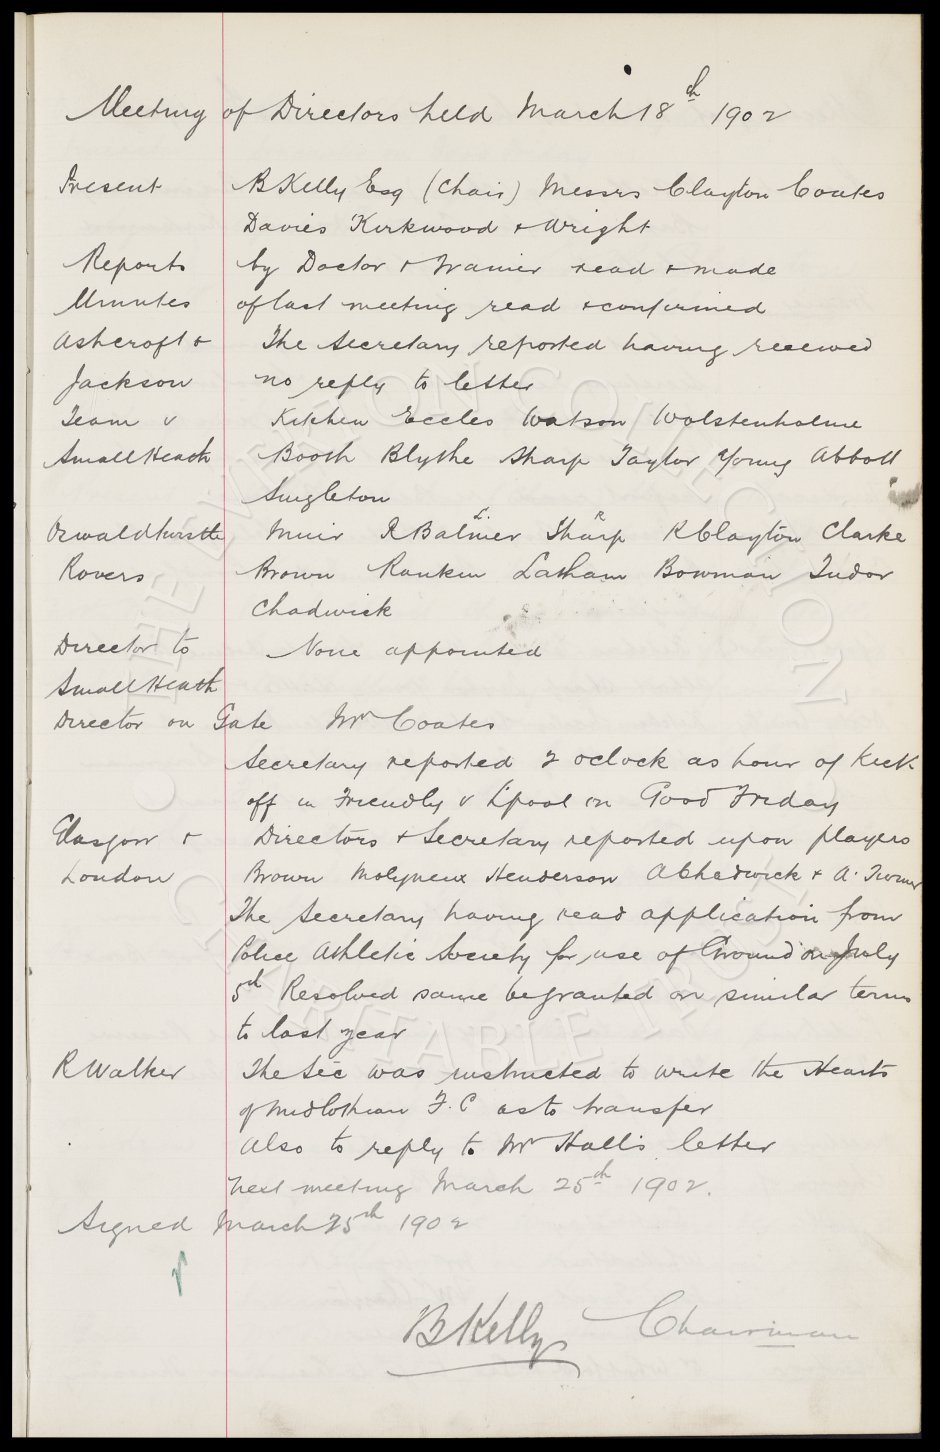 Meeting of Directors held March 18th 1902
Present B Kelly Esq (Chair) Messrs Clayton Coates
Davies Kirkwood + Wright
Reports by Doctor + Trainer read + made
Minutes of last meeting read + confirmed
Ashcroft + The Secretary reported having received
Jackson no reply to letter
Team v Kitchen Eccles Watson Wolstenholme
Small Heath Booth Blythe Sharp Taylor Young Abbott
Singleton
Oswaldtwistle Muir R Balmer L Sharp R Clayton Clarke
Rovers Brown Rankin Latham Bowman Tudor
Chadwick
Director to None appointed
Small Heath
Director on Gate Mr Coates
Secretary reported 2 oclock as hour of Kick
off in Friendly v L'pool on Good Friday
Glasgow + Directors + Secretary reported upon players
London Brown Molyneux Henderson A Chadwick + A. Turner
The Secretary having read application from
Police Athletic Society for use of Ground on July
5th Resolved same be granted on similar terms
to last year
R Walker The Sec was instructed to write the Hearts
of Midlothian F.C as to transfer
Also to reply to Mr Hall's letter
Next meeting March 25th 1902.
Signed March 25th 1902
B Kelly Chairman
THE EVERTON COLLECTION
CHARITABLE TRUST
©